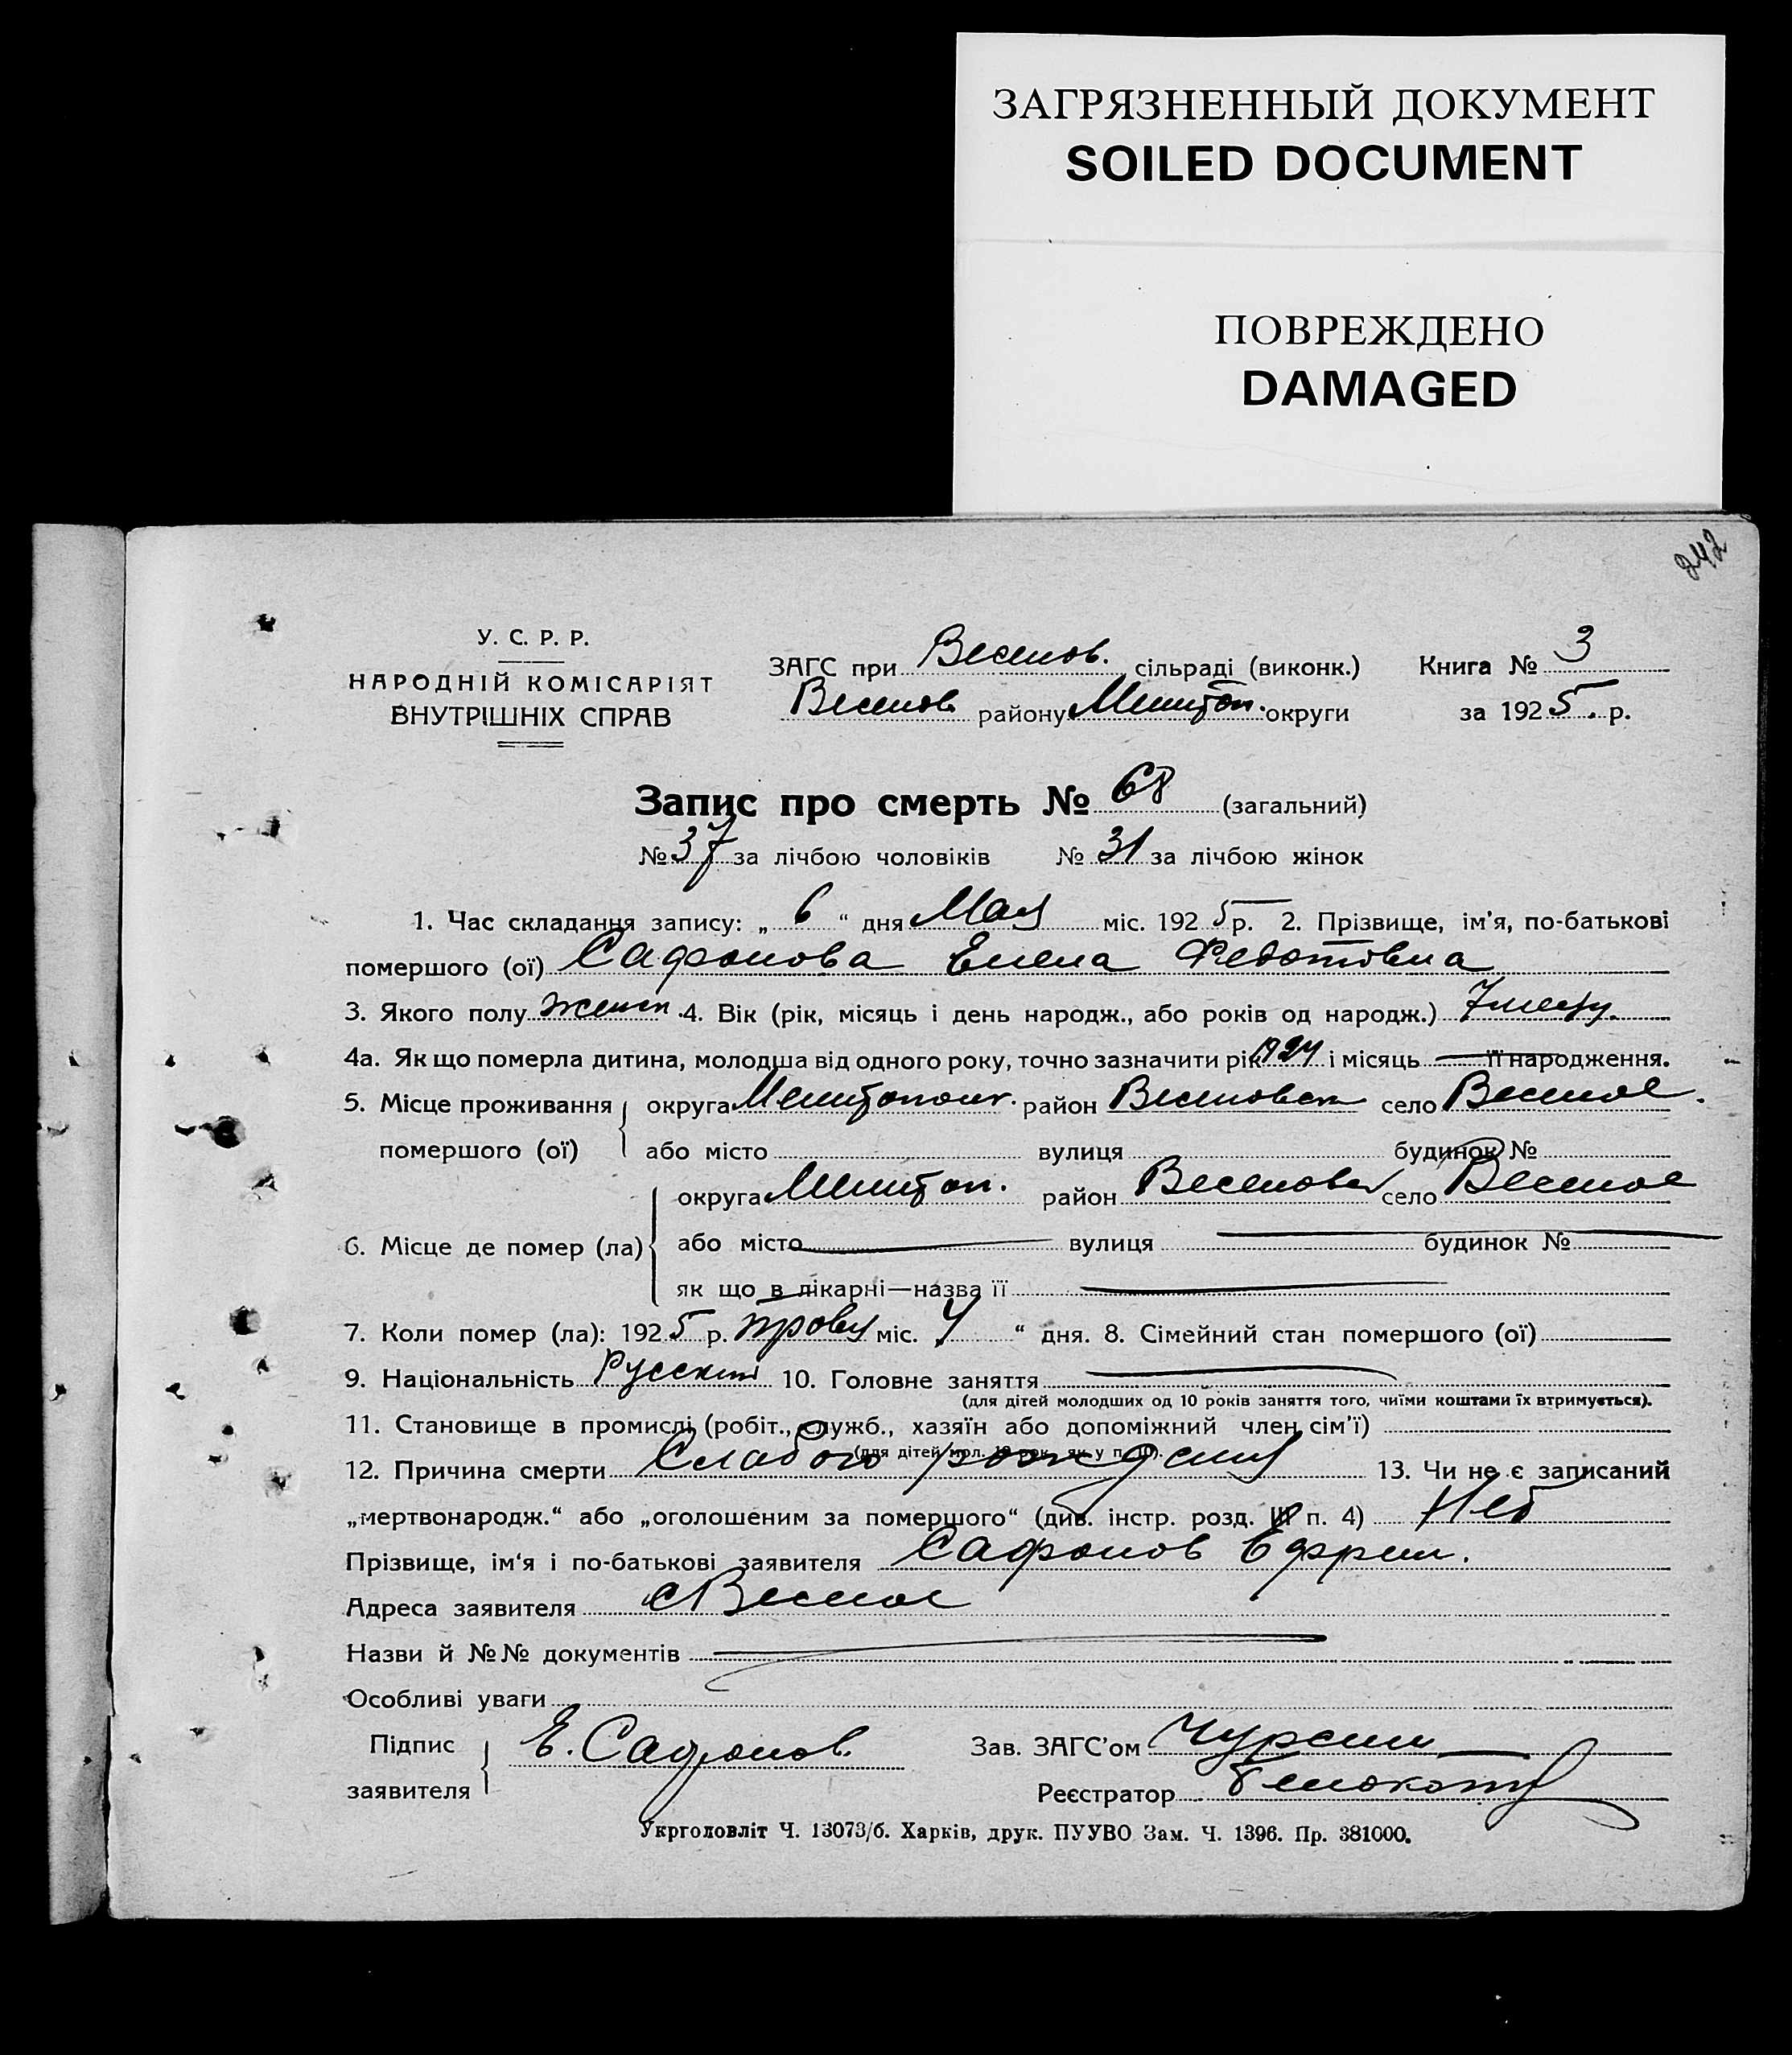 ЗАГРЯЗНЕННЫЙ ДОКУМЕНТ
SOILED DOCUMENT
ПОВРЕЖДЕНО
DAMAGED
242
У. С. Р. Р.
НАРОДНІЙ КОМІСАРІЯТ
ВНУТРІШНІХ СПРАВ
ЗАГС при Веселов. сільраді (виконк.) Книга № 3
Веселов районуМелитоп. округи за 1925 р.
Запис про смерть № 68 (загальний)
№ 37 за лічбою чоловіків № 31 за лічбою жінок
1. Час складання запису: „ 6 “ дня Мая міс. 1925 р. 2. Прізвище, ім'я, по-батькові
помершого (ої) Сафонова Елена Федотовна
3. Якого полу женск. 4. Вік (рік, місяць і день народж., або років од народж.) 7 месяц.
4а. Як що померла дитина, молодша від одного року, точно зазначити рік 1924 і місяць її народження.
5. Місце проживання округа Мелитопол. район Веселовск село Веселое.
помершого (ої) або місто вулиця будинок №
округа Мелитоп. район Веселовск село Веселое
6. Місце де помер (ла) або місто вулиця будинок №
як що в лікарні—назва її
7. Коли помер (ла): 1925 р. травня міс. 4 “ дня. 8. Сімейний стан помершого (ої)
9. Національність Русский 10. Головне заняття
(для дітей молодших од 10 років заняття того, чиїми коштами їх втримується).
11. Становище в промислі (робіт., служб., хазяїн або допоміжний член сім'ї)
(для дітей мол. 10 рок., як у п. 10).
12. Причина смерти Слабого рождения 13. Чи не є записаний
„мертвонародж.“ або „оголошеним за помершого“ (див. інстр. розд. п. 4) Нет
Прізвище, ім'я і по-батькові заявителя Сафонов Ефрем.
Адреса заявителя с Веселое
Назви й №№ документів
Особливі уваги
Підпис заявителя Е. Сафонов. Зав. ЗАГС'ом Чурсин
Реєстратор
Укрголовліт Ч. 13073/б. Харків, друк. ПУУВО Зам. Ч. 1396. Пр. 381000.